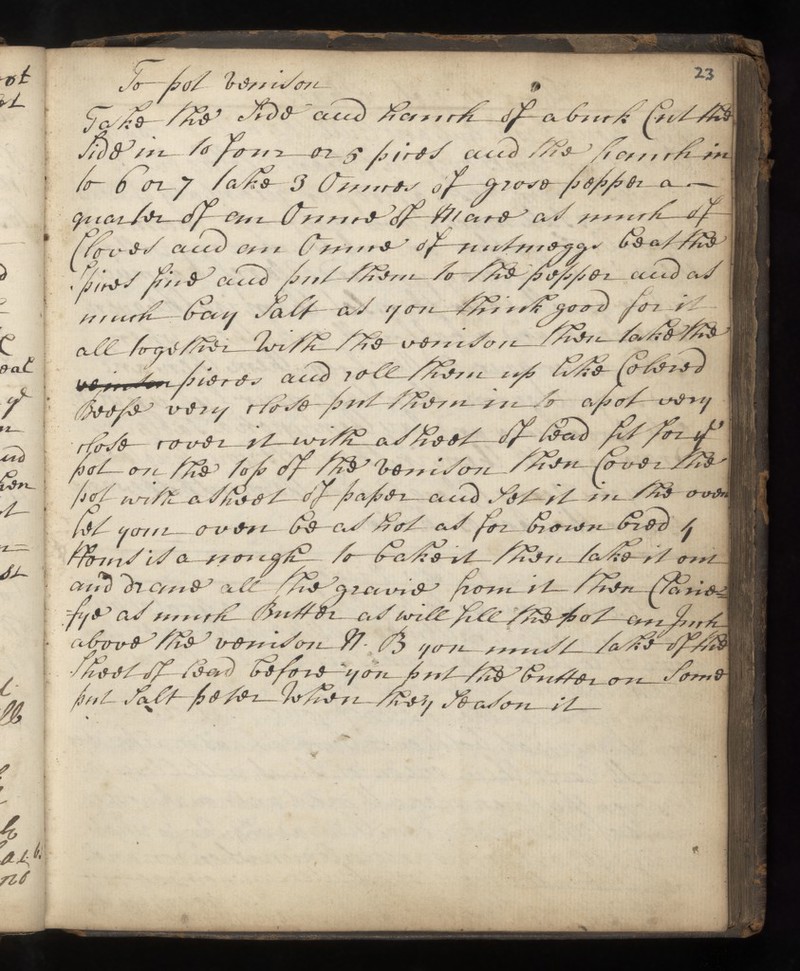 23
To pot venison
Take the Side and hanch of a buck Cut the
Side in to four or 5 pices and the hanch in
to 6 or 7 take 3 Ounces of grose pepper a
quarter of an Ounce of Mace as much of
Cloves and an Ounce of nutmeggs beat the
spices fine and put them to the pepper and as
much bay Salt as you think good for it
all together With the venison then take the
venison pieces and roll them up like Colered
Beefe very close put them in to a pot very
close cover it with a sheet of lead fit for ye
pot on the top of the venison then Cover the
pot with a sheet of paper and Set it in the oven
let your oven be as hot as for brown bred 4
Hours is a nough to bake it then take it out
and drane all the gravie from it then Clarie=
=fye as much Butter as will fill the pot an Inch
above the venison N. B you must take of the
Sheet of lead before you put the butter on Some
put Salt peter When they Season it